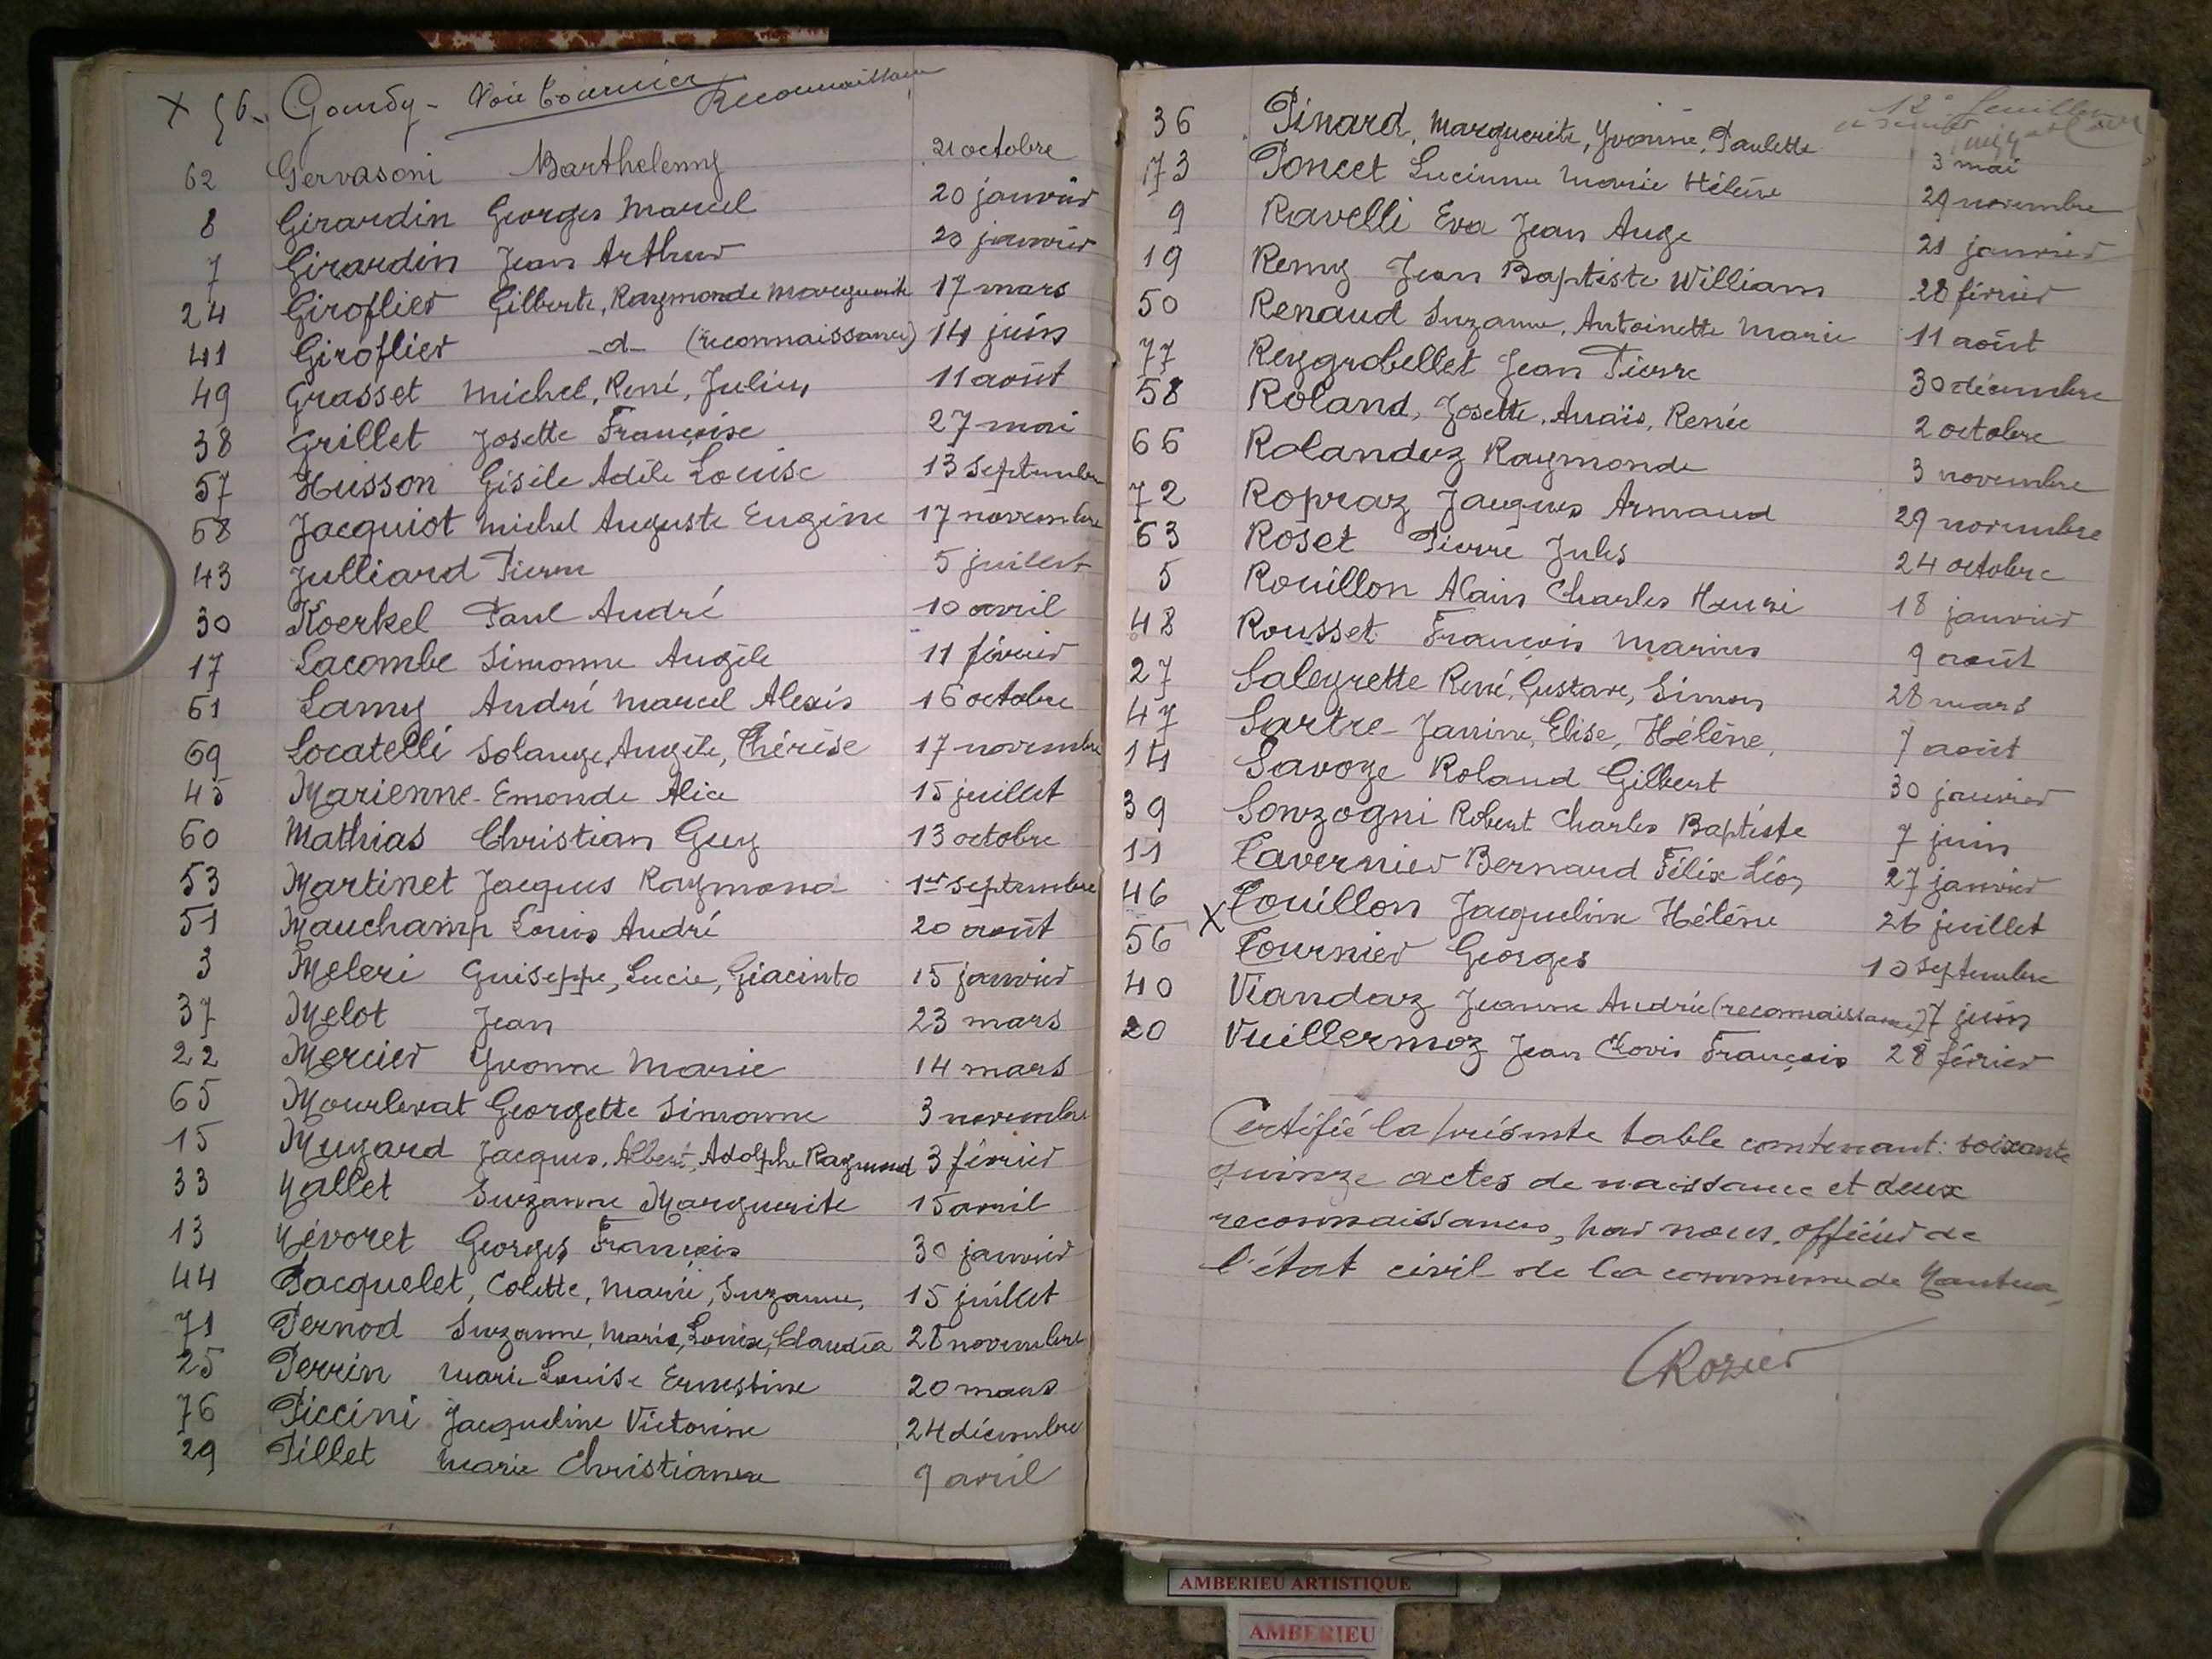 X 56. Gourdy - Voir Tournier Reconnaissance
62 Gervasoni Barthelemy 21 octobre
8 Girardin Georges Marcel 20 janvier
7 Girardin Jean Arthur 20 janvier
24 Giroflier Gilberte, Raymonde Marguerite 17 mars
41 Giroflier -d- (reconnaissance) 14 juin
49 Grasset Michel, René, Julien 11 août
38 Grillet Josette Françoise 27 mai
57 Husson Gisèle Adèle Louise 13 septembre
68 Jacquiot Michel Auguste Eugène 17 novembre
43 Julliard Pierre 5 juillet
30 Koerkel Paul André 10 avril
17 Lacombe Simonne Angèle 11 février
61 Lamy André Marcel Alexis 16 octobre
69 Locatelli Solange, Angèle, Thérèse 17 novembre
45 Marienne Emonde Alice 15 juillet
60 Mathias Christian Guy 13 octobre
53 Martinet Jacques Raymond 1er septembre
51 Mauchamp Louis André 20 août
3 Meleri Guiseppe, Lucie, Giacinto 15 janvier
37 Melot Jean 23 mars
22 Mercier Yvonne Marie 14 mars
65 Mourlevat Georgette Simonne 3 novembre
15 Muzard Jacques, Albert, Adolphe Raymond 3 février
33 Nallet Suzanne Marguerite 15 avril
13 Névoret Georges François 30 janvier
44 Pacquelet, Colette, Marie, Suzanne, 15 juillet
71 Pernod Suzanne, Marie, Louise, Claudia 28 novembre
25 Perrin Marie Louise Ernestine 20 mars
76 Piccini Jacqueline Victorine 24 décembre
29 Pillet Marie Christianne 9 avril
12e feuillet
36 Pinard, Marguerite, Yvonne, Paulette 3 mai
73 Poncet Lucienne Marie Hélène 29 novembre
9 Ravelli Eva Jean Ange 21 janvier
19 Remy Jean Baptiste William 28 février
50 Renaud Suzanne, Antoinette Marie 11 août
77 Reygrobellet Jean Pierre 30 décembre
58 Roland, Josette, Anaïs, Renée 2 octobre
66 Rolandez Raymonde 3 novembre
72 Ropraz Jacques Armand 29 novembre
63 Roset Pierre Jules 24 octobre
5 Rouillon Alain Charles Henri 18 janvier
48 Rousset François Marius 9 août
27 Saleyrette René, Gustave, Simon 28 mars
47 Sartre Janine, Elise, Hélène, 7 août
14 Savoye Roland Gilbert 30 janvier
39 Sonzogni Robert Charles Baptiste 7 juin
11 Tavernier Bernard Félix Léon 27 janvier
46 Touillon Jacqueline Hélène 26 juillet
56 X Tournier Georges 10 septembre
40 Viandaz Jeanne Andrée (reconnaissance) 7 juin
20 Vuillermoz Jean Clovis François 28 février
Certifié la présente table contenant: soixante
quinze actes de naissance et deux
reconnaissances, par nous, officier de
l'état civil de la commune de Nantua,
CRozier
AMBERIEU ARTISTIQUE
AMBERIEU